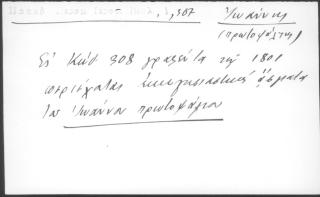 1,307 Ἰωάννης
(πρωτοψάλτης)
Εἰς Κώδ 308 γραφέντα τῷ 1801
περιέχεται ἐκκλησιαστικὰ ᾄσματα
τοῦ Ἰωάννου πρωτοψάλτου